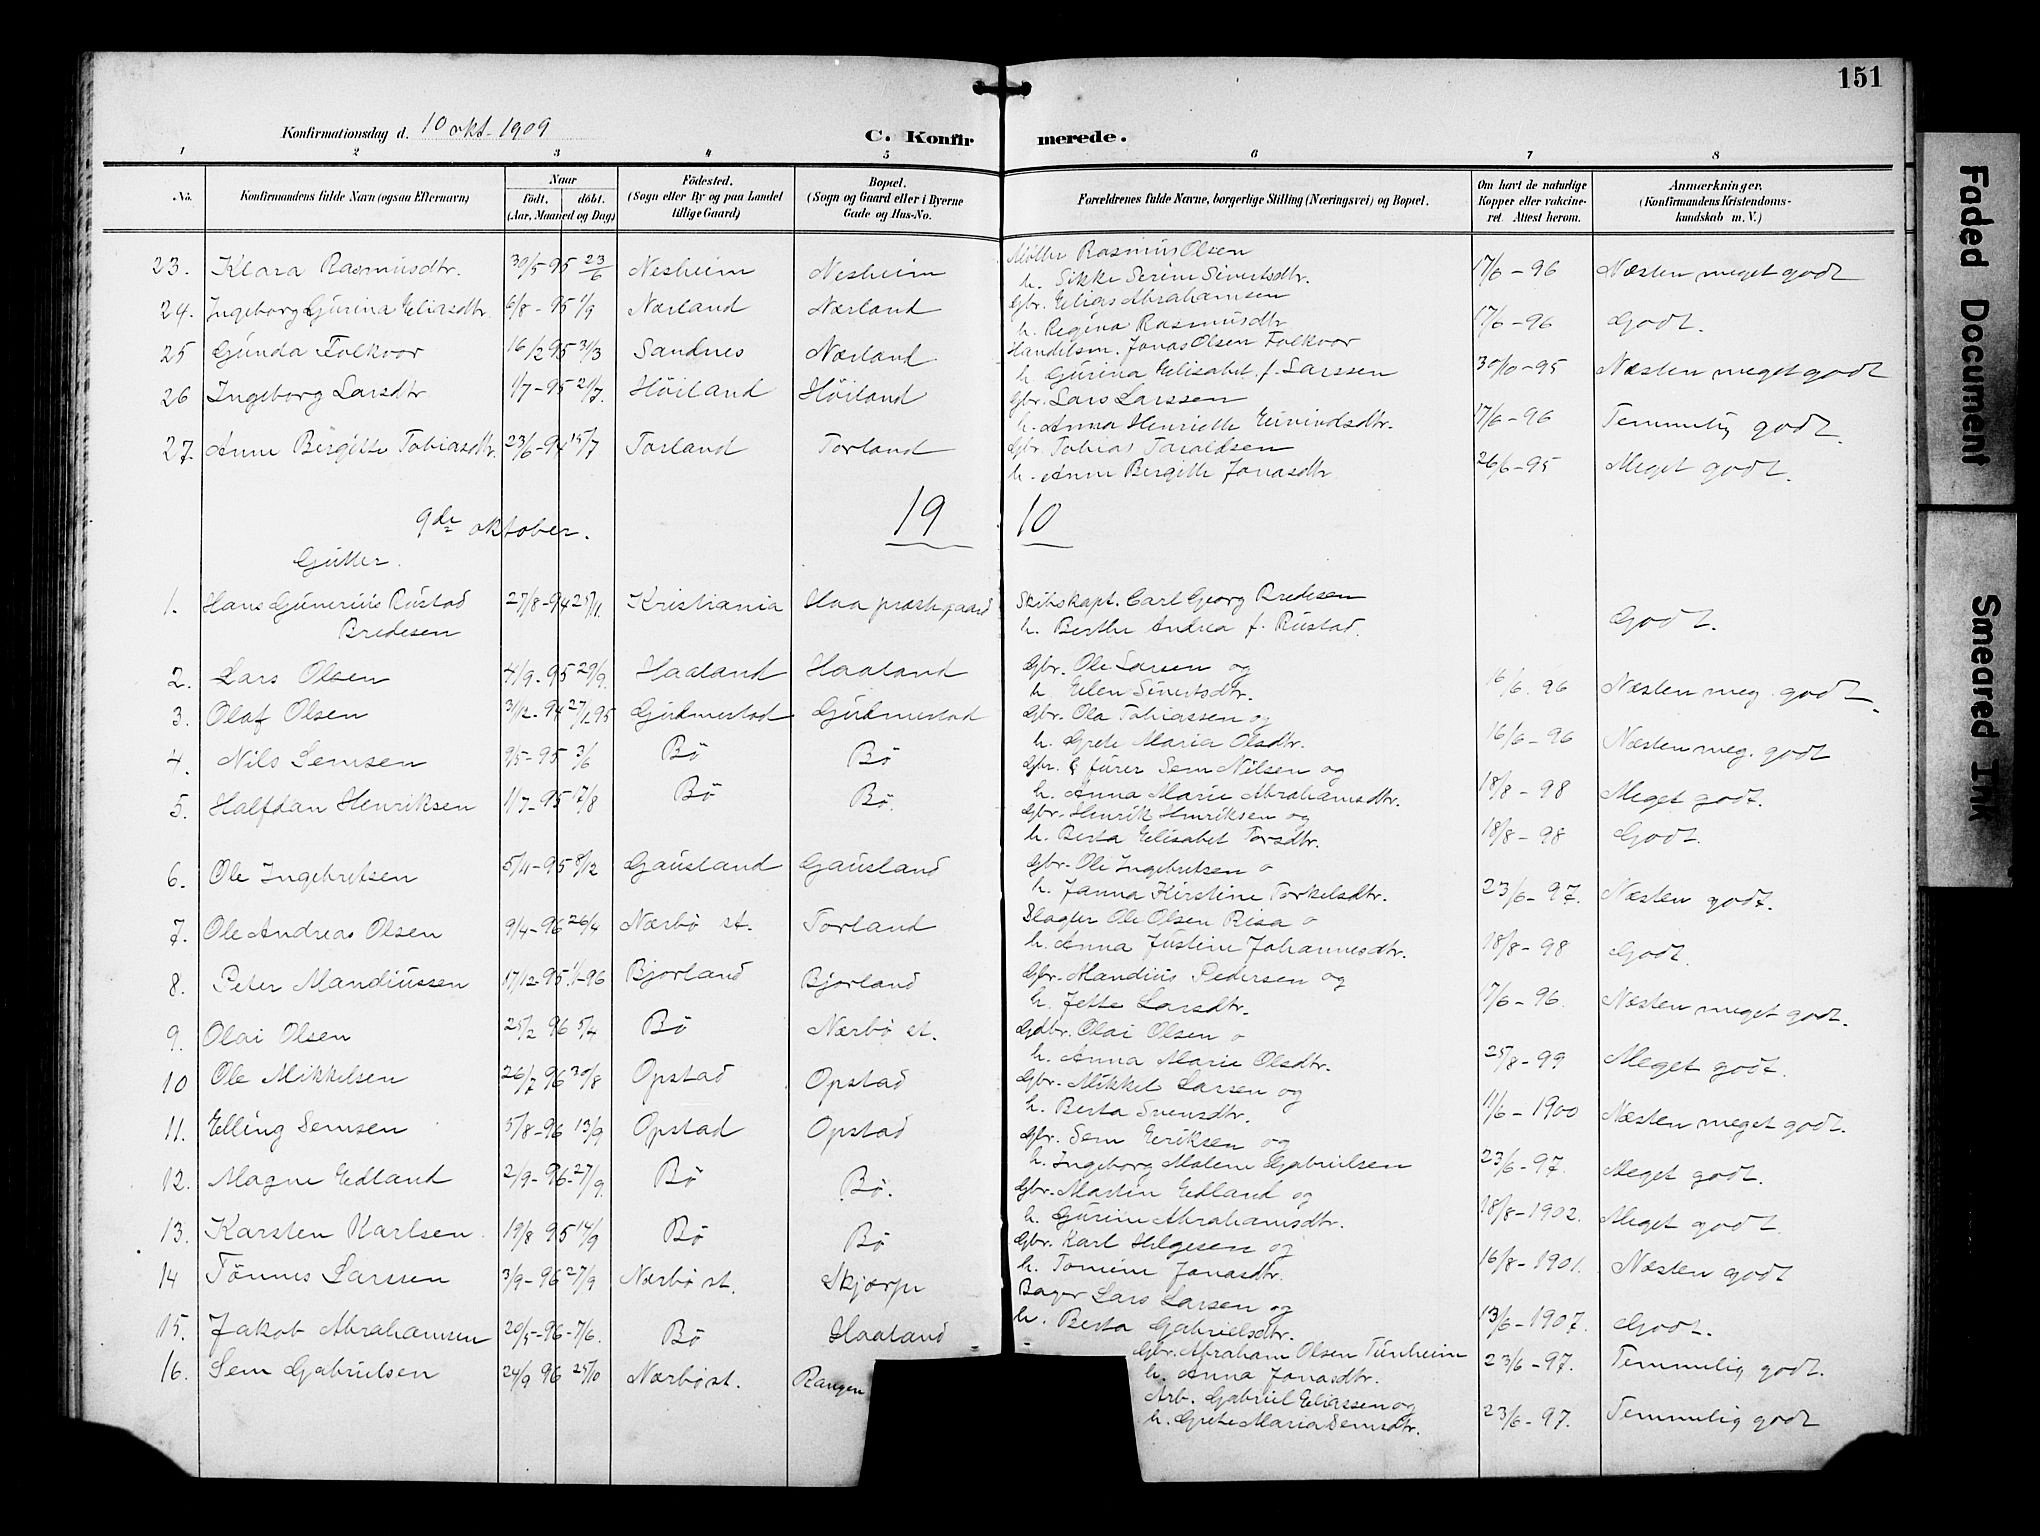 151
Konfirmationsdag d. 10 okt. 1909
C. Konfirmerede.
1 2 3 4 5 6 7 8
No. Konfirmandens fulde Navn (ogsaa Efternavn) Naar Født, døbt. (Aar, Maaned og Dag) Fødested. (Sogn eller By og paa Landet tillige Gaard) Bopæl. (Sogn og Gaard eller i Byerne Gade og Hus-No. Forældrenes fulde Navne, borgerlige Stilling (Næringsvei) og Bopæl. Om havt de naturlige Kopper eller vaccineret. Attest herom. Anmærkninger. (Konfirmandens Kristendomskundskab m. V.)
23. Klara Rasmusdtr. 30/5-95 23/6 Nesheim Nesheim Møller Rasmus Olsen 17/6-96 Næsten meget godt
h. Sikke Serine Sivertsdtr.
24. Ingeborg Gurina Eliasdtr. 6/8-95 1/9 Nærland Nærland Gbr. Elias Abrahamsen 17/6-96 Godt.
h. Regina Rasmusdtr
25 Gunda Folkvor 16/2 95 31/3 Sandnes Nærland Handelsm. Jonas Olsen Folkvor 30/10-95 Næsten meget godt
h. Gurina Elisabet f. Larssen
26 Ingeborg Larsdtr 1/7-95 21/7. Höiland Höiland Gbr. Lars Larssen 17/6-96 Temmelig godt.
h. Anna Henriette Eivindsdtr.
27. Anne Birgitte Tobiasdtr. 23/6-94 15/7 Torland Torland Gbr Tobias Taraldsen 26/6-95 Meget godt.
h. Anne Birgitte Jonasdtr
9de oktober. 19 10
Gutter.
1. Hans Gunerius Rustad 27/8-94 25/11. Kristiania Haa præstegaard Skibskapt. Carl Georg Bredesen Godt.
Bredesen h. Berthe Andrea f. Rustad.
2. Lars Olsen 4/9-95 29/9. Haaland Haaland Gbr. Ole Larsen og 16/6. 96 Næsten meg. godt.
h. Elen Sivertsdtr.
3. Olaf Olsen 31/12-94 27/1 95 Gudmestad Gudmestad Gbr. Ola Tobiassen og 16/6-96 Næsten meg. godt
h. Grete Maria Olsdtr.
4. Nils Semsen 9/5-95 3/6 Bö Bö Gbr. & furer Sem Nilsen og 18/8-98 Meget godt.
h. Anna Marie Abrahamsdtr.
5. Halfdan Henriksen 1/7-95 17/8 Bö Bö. Gbr. Henrik Henriksen og 18/8-98 Godt.
h. Berta Elisabet Torsdtr.
6. Ole Ingebretsen 5/11-95 8/12 Gausland Gausland Gbr. Ole Ingebretsen o 23/6-97. Næsten godt.
h. Janna Kirstine Torkelsdtr.
7. Ole Andreas Olsen 9/4-96 26/4 Nærbö st. Torland Slagter Ole Olsen Risa o 18/8-98 Godt.
h. Anna Justine Johannesdtr.
8. Peter Mandiussen 17/12-95. 1/1-96 Bjorland Bjorland Gbr. Mandius Pedersen og 17/6-96. Næsten meget godt.
h. Jette Larsdtr.
9. Olai Olsen 25/2 96 5/4 Bö Nærbö st. Gdbr. Olai Olsen o 25/8-99 Meget godt.
h. Anna Marie Olsdtr.
10 Ole Mikkelsen 26/7 96 30/8 Opstad Opstad Gbr. Mikkel Larsen og 11/6-1900 Næsten meget godt.
h. Berta Svensdtr.
11. Elling Semsen 5/8-96 13/9 Opstad Opstad Gbr. Sem Eriksen og 23/6-97. Meget godt.
h. Ingeborg Malene Gabrielsen
12. Magne Edland 2/9-96-27/9. Bö Bö. Gbr. Martin Edland og 18/8-1902. Meget godt.
h. Gurine Abrahamsdtr.
13. Karsten Karlsen. 19/8 95 14/9 Bö Bö Gbr. Karl Helgesen og 16/8-1901. Næsten godt
h. Tomine Jonasdtr.
14 Tönnes Larssen 3/9-96 27/9 Nærbö st. Skjærpe Bager Lars Larsen og 13/6-1907. Godt.
h. Berta Gabrielsdtr.
15. Jakob Abrahamsen 20/5-96-7/6. Bö Haaland Gbr. Abraham Olsen Tunheim 23/6-97. Temmelig godt.
h. Anna Jonasdtr.
16. Sem Gabrielsen 24/9 96 25/10 Nærbö st. Rangen Arb. Gabriel Eliassen og 23/6-97. Temmelig godt
h. Grete Maria Semsdtr.
Faded Document
Smeared Ink